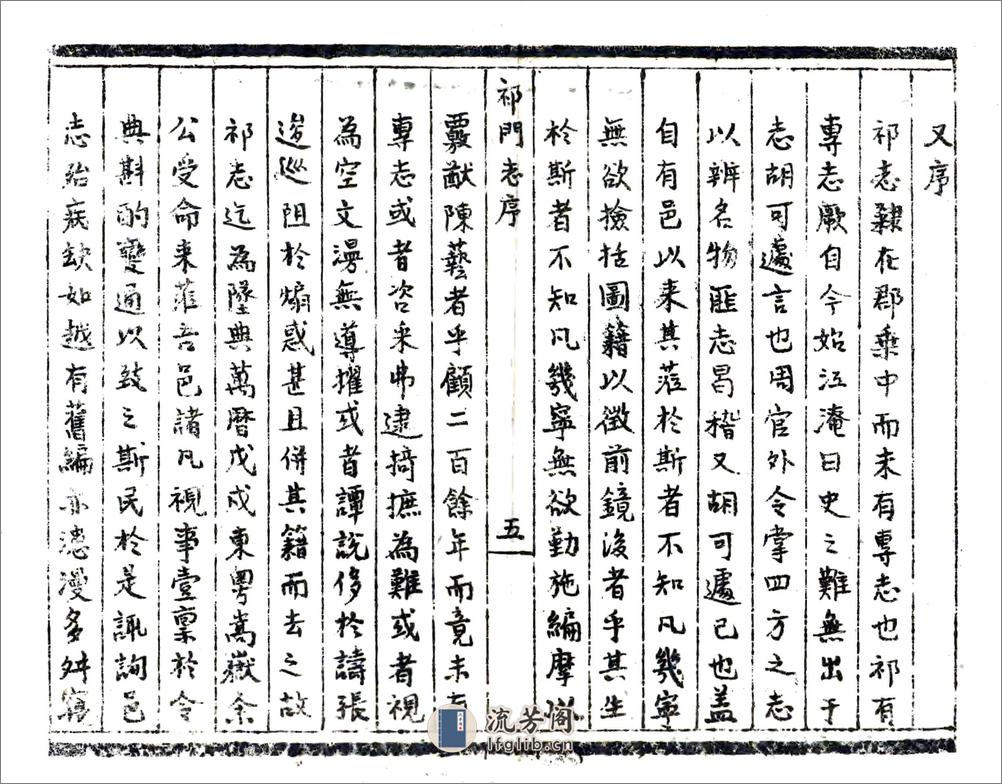 又序
祁志隸在郡乗中而未有専志也祁有
専志厥自今始江淹曰史之難無出于
志胡可遽言也周官外令掌四方之志
以辨名物匪志曷稽又胡可遽已也盖
自有邑以来其蒞於斯者不知凡幾寧
無欲撿括圖籍以徴前鏡後者乎其生
於斯者不知凡幾寧無欲勤施編摩以
祁門志序
五
覈猷陳藝者乎顧二百餘年而竟未有
専志或者咨采弗逮掎摭為難或者視
為空文漫無導擢或者譚說侈於譸張
逡巡阻於煽惑甚且併其籍而去之故
祁志迄為墜典萬曆戊戌東粤嵩嶽余
公受命来蒞吾邑諸凡視事壹禀於令
典斟酌變通以致之斯民於是諏詢邑
志殆病缺如越有舊編亦漶漫多舛寘
流芳阁
lfglib.cn